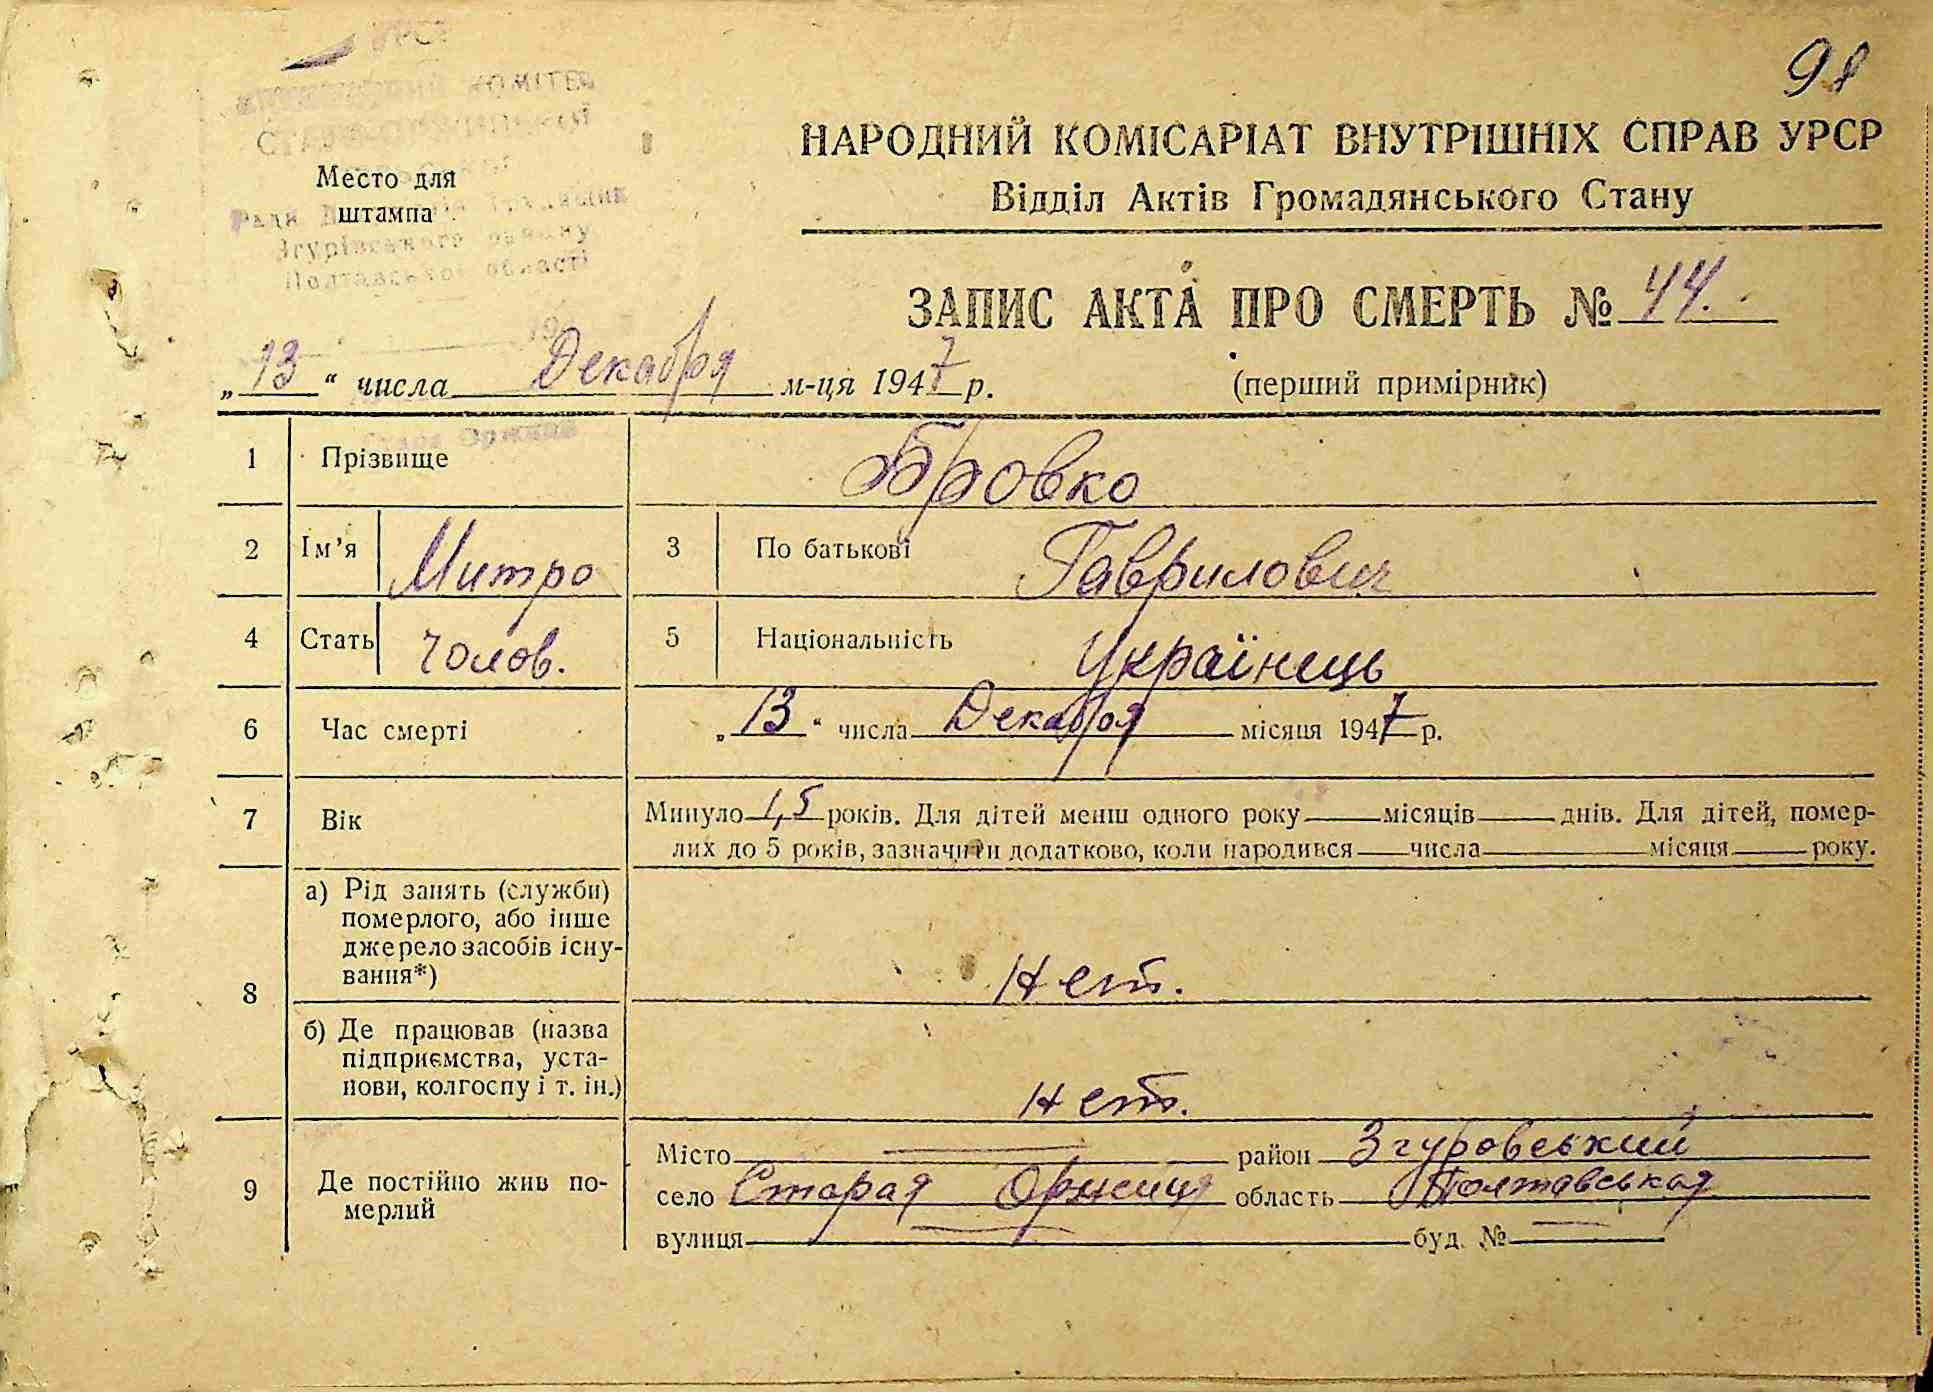 98
УРСР
КОМІТЕТ
Место для
штампа
Ради
Згурівського району
Полтавської області
НАРОДНИЙ КОМІСАРІАТ ВНУТРІШНІХ СПРАВ УРСР
Відділ Актів Громадянського Стану
ЗАПИС АКТА ПРО СМЕРТЬ № 44.
„13“ числа Декабря м-ця 1947 р.
(перший примірник)
1 Прізвище Бровко
2 Ім’я Митро 3 По батькові Гаврилович
4 Стать Чолов. 5 Національність Українець
6 Час смерті „13“ числа Декабря місяця 1947 р.
7 Вік Минуло 1,5 років. Для дітей менш одного року місяців днів. Для дітей, помер-
лих до 5 років, зазначити додатково, коли народився числа місяця року.
8 а) Рід занять (служби)
померлого, або інше
джерело засобів існу-
вання*) Нет.
б) Де працював (назва
підприємства, уста-
нови, колгоспу і т. ін.) Нет.
9 Де постійно жив по-
мерлий
Місто район Згуровський
село Старая Оржиця область Полтавськая
вулиця буд. №